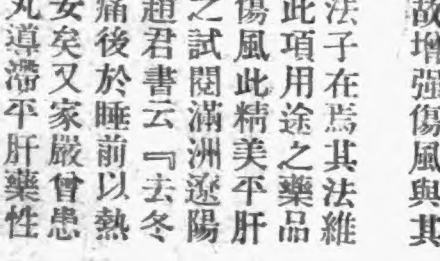 故增强傷風與其
法子在焉其法維
此項用途之藥品
傷風此精美平肝
之試閱滿洲遼陽
趙君書云『去冬
痛後於睡前以熱
安矣又家嚴曾患
丸導滯平肝藥性